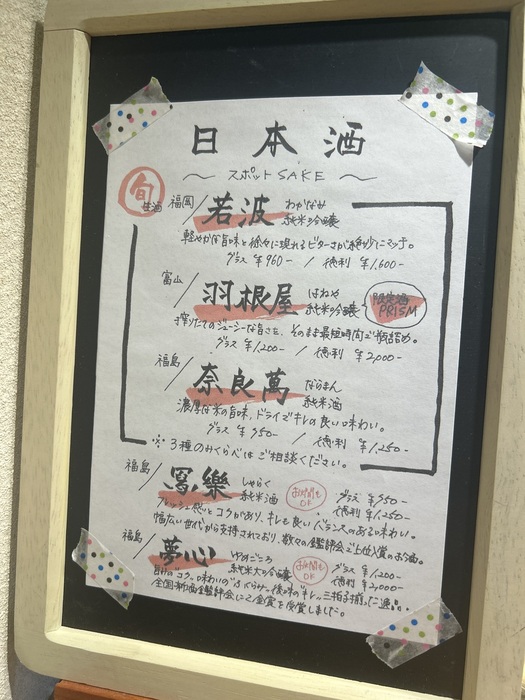 日本酒
～ スポットSAKE ～
旬 生酒
福岡 若波 わかなみ 純米吟醸
軽やかな旨味と徐々に現れるビターさが絶妙にマッチ。
グラス ¥960- / 徳利 ¥1,600-
富山 羽根屋 はねや 純米吟醸 限定酒 PRISM
搾りたてのジューシーな旨さを、そのまま最短時間で瓶詰め。
グラス ¥1,200- / 徳利 ¥2,000-
福島 奈良萬 ならまん 純米酒
濃厚な米の旨味、ドライでキレの良い味わい。
グラス ¥750- / 徳利 ¥1,250-
※3種のみくらべはご相談ください。
福島 寫樂 しゃらく 純米酒 お燗も OK グラス ¥750- 徳利 ¥1,250-
フレッシュ感とコクがあり、キレも良いバランスのある味わい。
幅広い世代から支持されており、数々の鑑評会で上位入賞のお酒。
福島 夢心 ゆめごころ 純米大吟醸 お燗も OK グラス ¥1,200- 徳利 ¥2,000-
"コク" 味わいの"ふくらみ" 後味の"キレ" 三拍子揃った逸品。
全国新酒鑑評会にて金賞を受賞しました。